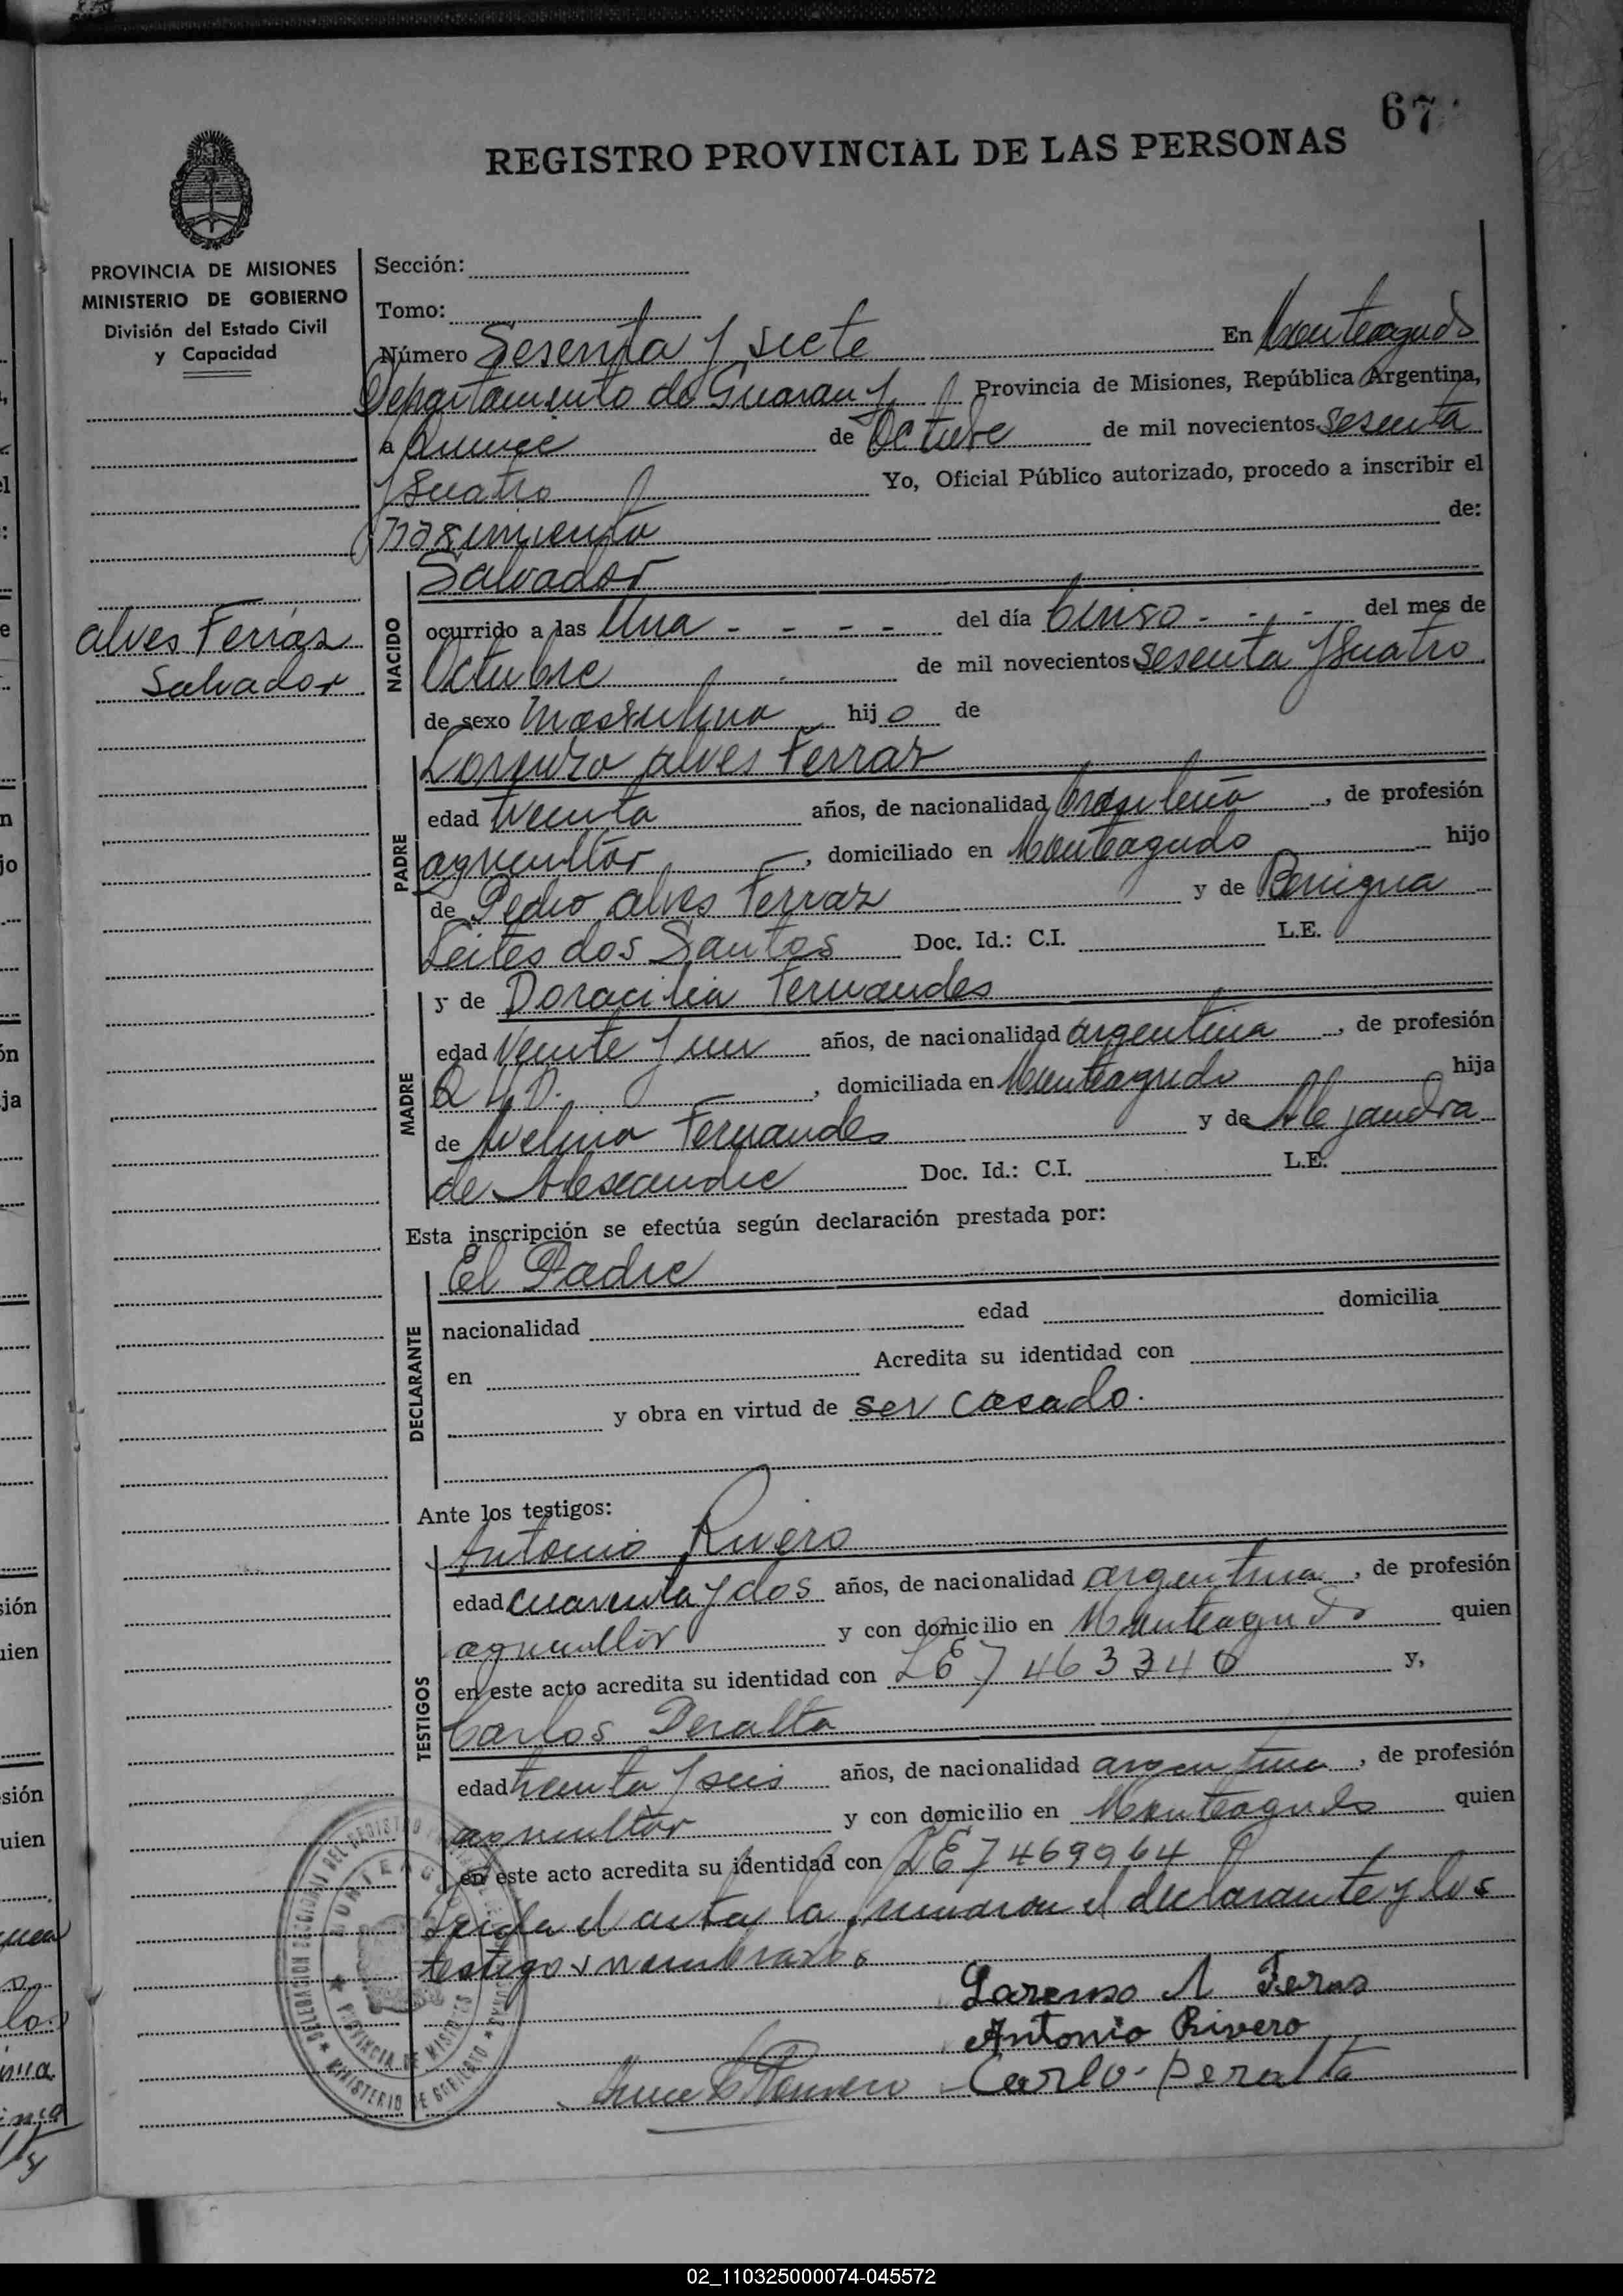 67
REGISTRO PROVINCIAL DE LAS PERSONAS
PROVINCIA DE MISIONES
MINISTERIO DE GOBIERNO
División del Estado Civil
y Capacidad
Alves Ferras
Salvador
Sección:
Tomo:
Número Sesenta y siete En Monteagudo
Departamento de Guarany Provincia de Misiones, República Argentina,
a Quince de Octubre de mil novecientos sesenta
y Cuatro Yo, Oficial Público autorizado, procedo a inscribir el
nacimiento de:
NACIDO
Salvador
ocurrido a las Una - - - - del día Cinco - - - del mes de
Octubre de mil novecientos Sesenta y Cuatro
de sexo masculino hijo de
PADRE
Lorenzo Alves Ferraz
edad treinta años, de nacionalidad brasileña, de profesión
agricultor, domiciliado en Monteagudo hijo
de Pedro Alves Ferraz y de Benigna
Leites dos Santos Doc. Id.: C.I. L.E.
MADRE
y de Doracilia Fernandes
edad veinte y un años, de nacionalidad argentina, de profesión
Q.H.D. , domiciliada en Monteagudo hija
de Avelino Fernandes y de Alejandra
de Alesandre Doc. Id.: C.I. L.E.
Esta inscripción se efectúa según declaración prestada por:
DECLARANTE
El Padre
nacionalidad edad domicilia
en Acredita su identidad con
y obra en virtud de ser casado.
Ante los testigos:
TESTIGOS
Antonio Rivero
edad cuarenta y dos años, de nacionalidad argentina, de profesión
agricultor y con domicilio en Monteagudo quien
en este acto acredita su identidad con LE 7463340 y,
Carlos Peralta
edad treinta y seis años, de nacionalidad argentina, de profesión
agricultor y con domicilio en Monteagudo quien
en este acto acredita su identidad con LE 7469964
Leida el acta la firmaron el declarante y los
testigos nombrados
Lorenso A Feras
Antonio Rivero
Carlo Peralta
PROVINCIA DE MISIONES
MINISTERIO DE GOBIERNO
02_110325000074-045572